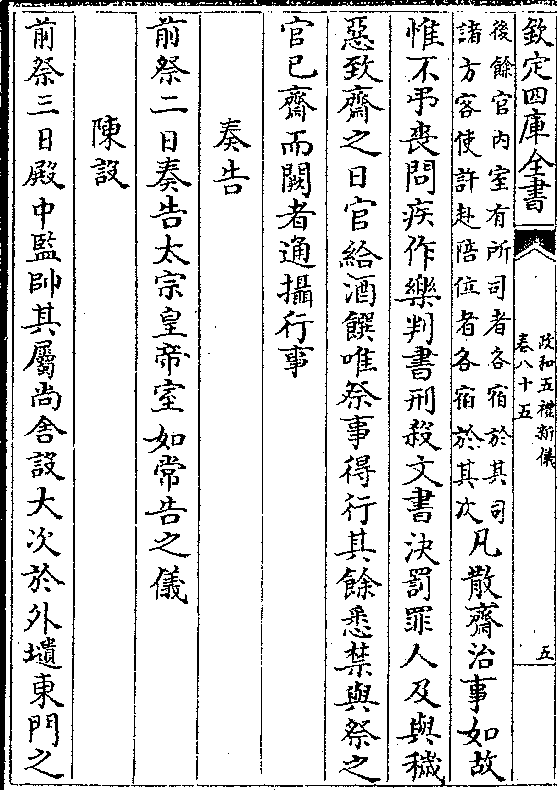 欽定四庫全書
政和五禮新儀
卷八十五
五
後餘官内室有所司者各宿於其司
諸方客使許赴陪位者各宿於其次
凡散齋治事如故
惟不弔喪問疾作樂判書刑殺文書決罰罪人及與穢
惡致齋之日官給酒饌唯祭事得行其餘悉禁與祭之
官已齋而闕者通攝行事
奏告
前祭二日奏告太宗皇帝室如常告之儀
陳設
前祭三日殿中監帥其屬尚舍設大次於外壝東門之